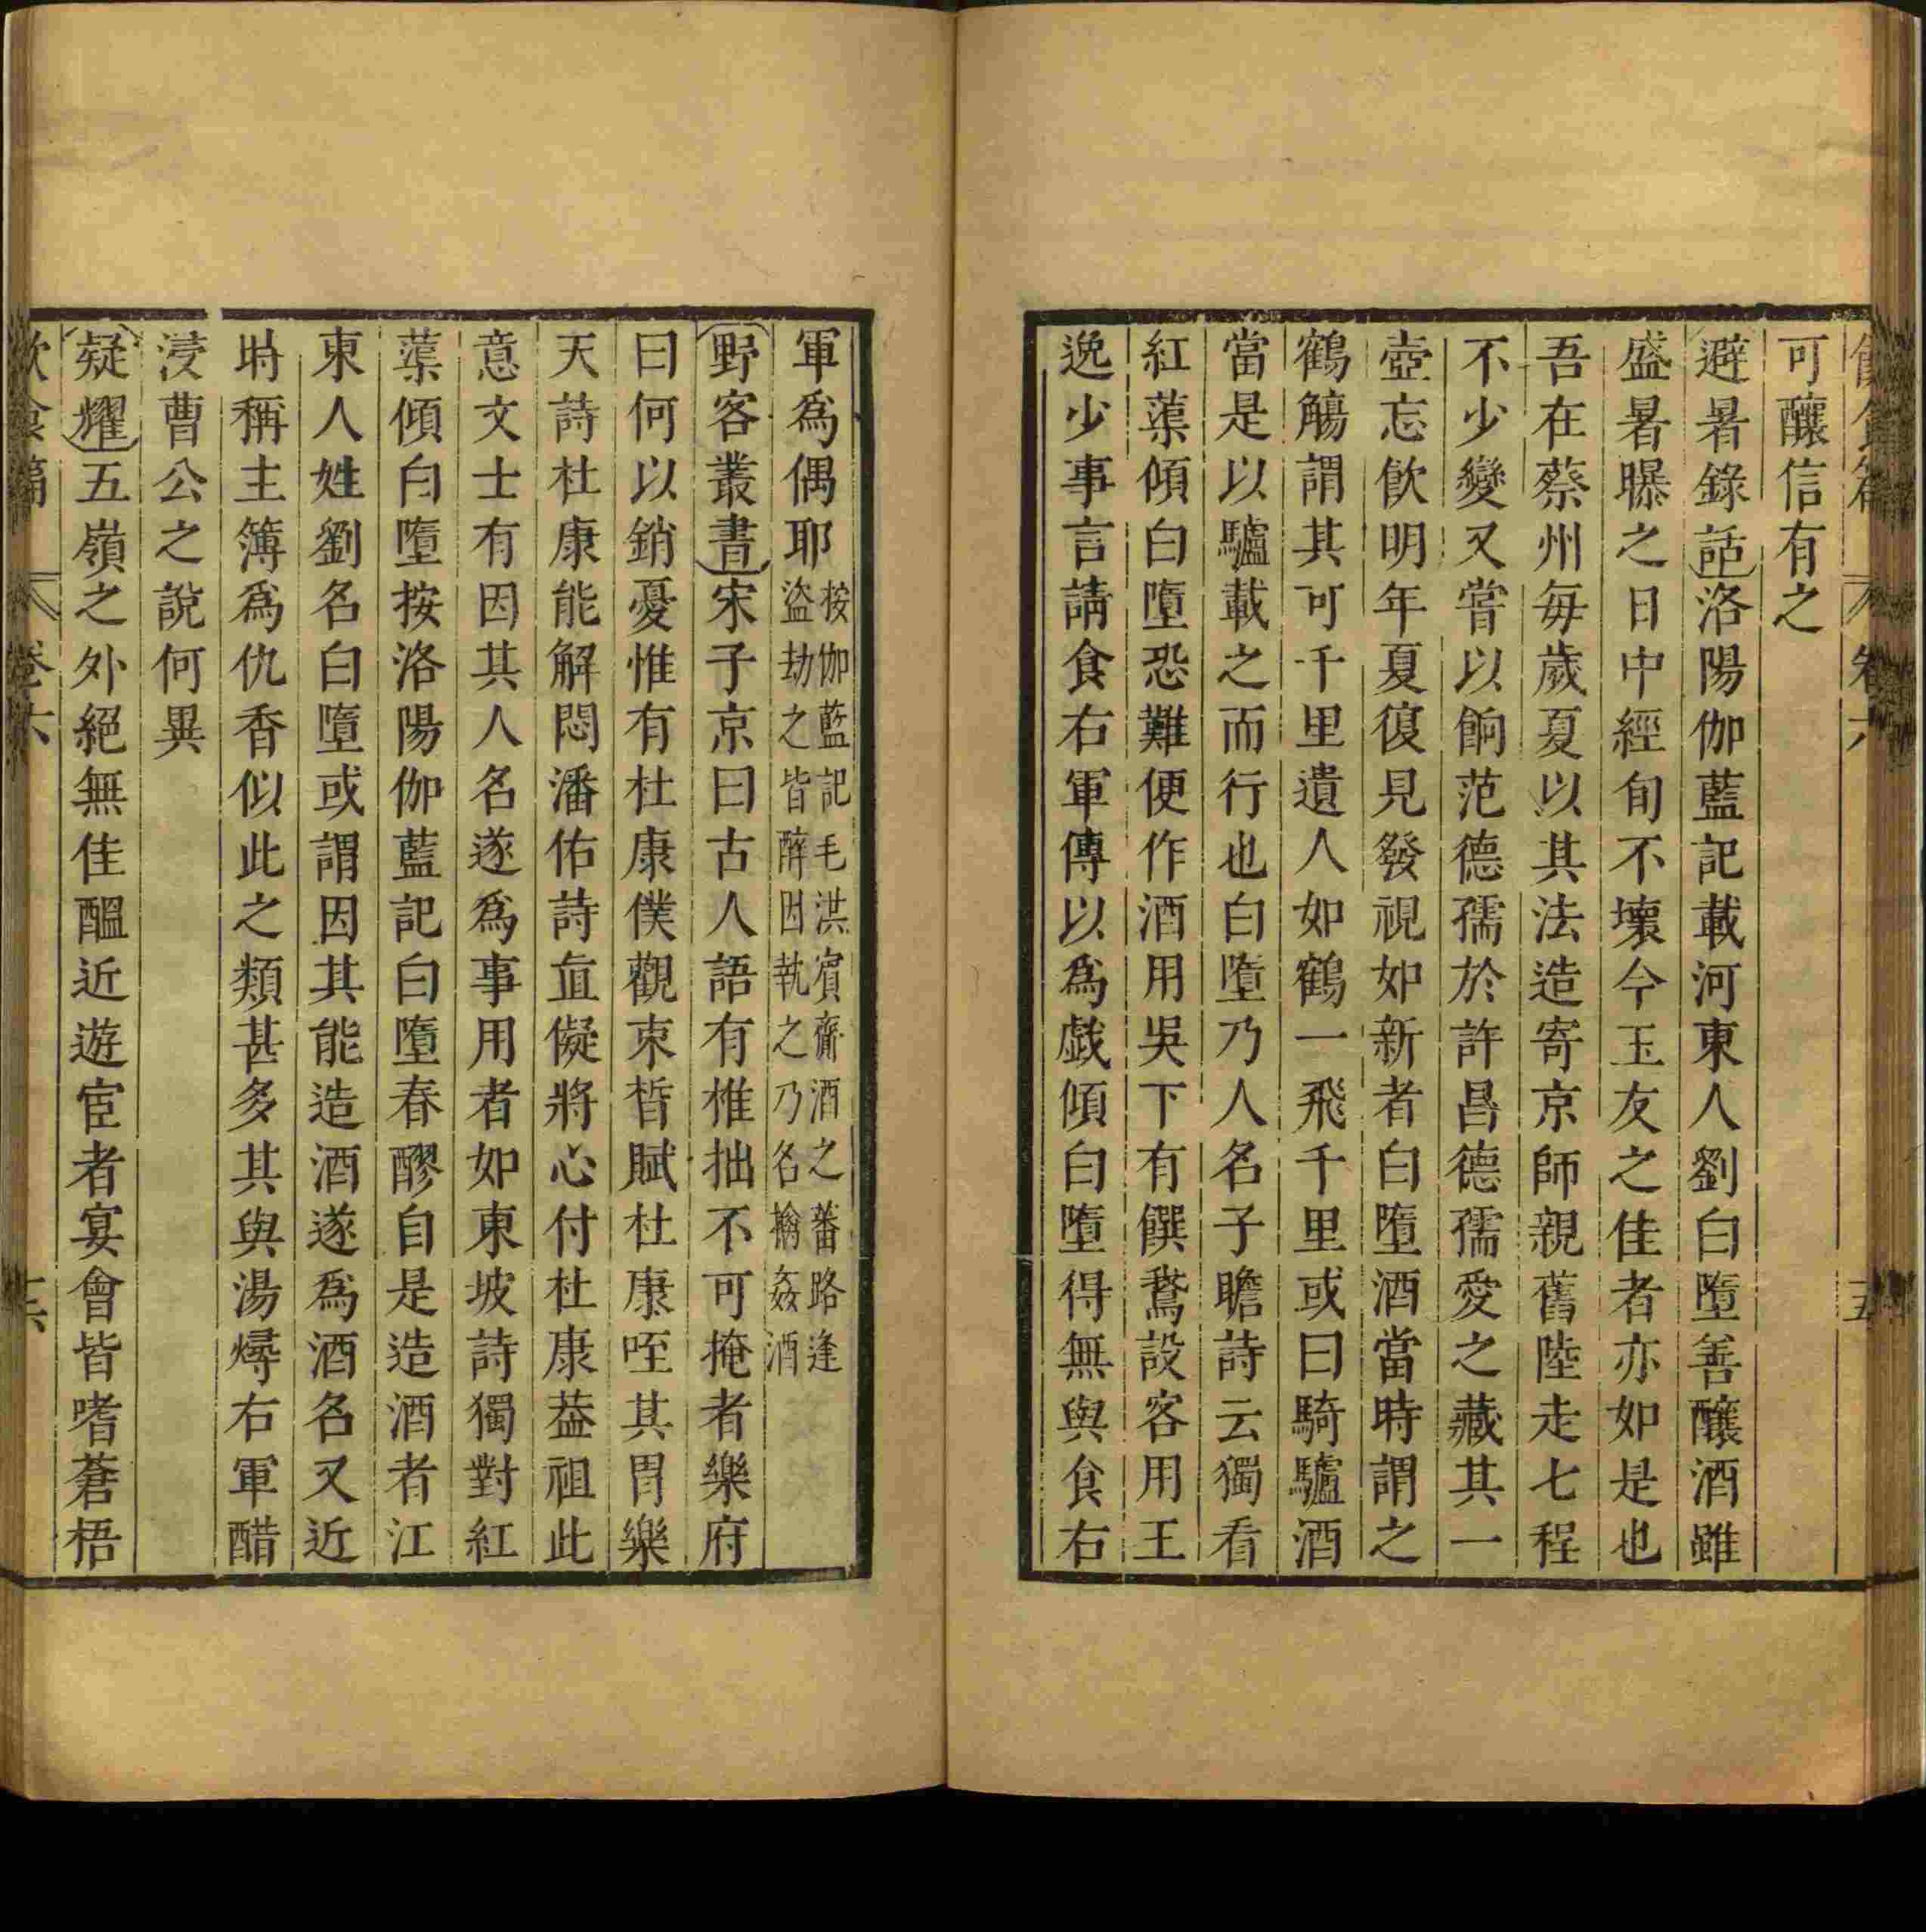 飲食篇 卷六 五
可釀信有之
避暑錄話洛陽伽藍記載河東人劉白墮善釀酒雖
盛暑曝之日中經旬不壞今玉友之佳者亦如是也
吾在蔡州每歲夏以其法造寄京師親舊陸走七程
不少變又嘗以餉范德孺於許昌德孺愛之藏其一
壺忘飲明年夏復見發視如新者白墮酒當時謂之
鶴觴謂其可千里遺人如鶴一飛千里或曰騎驢酒
當是以驢載之而行也白墮乃人名子瞻詩云獨看
紅蕖傾白墮恐難便作酒用吳下有饌鵞設客用王
逸少事言請食右軍傳以為戯傾白墮得無與食右
軍為偶耶按伽藍記毛洪賓齎酒之蕃路逢盜劫之皆醉因執之乃名擒姦酒
野客叢書宋子京曰古人語有椎拙不可掩者樂府
曰何以銷憂惟有杜康僕觀束晳賦杜康咥其胃樂
天詩杜康能解悶潘佑詩直儗將心付杜康葢祖此
意文士有因其人名遂為事用者如東坡詩獨對紅
蕖傾白墮按洛陽伽藍記白墮春醪自是造酒者江
東人姓劉名白墮或謂因其能造酒遂為酒名又近
時稱主簿為仇香似此之類甚多其與湯燖右軍醋
浸曹公之說何異
疑耀五嶺之外絕無佳醞近遊宦者宴會皆嗜蒼梧
飲食篇 卷六 六